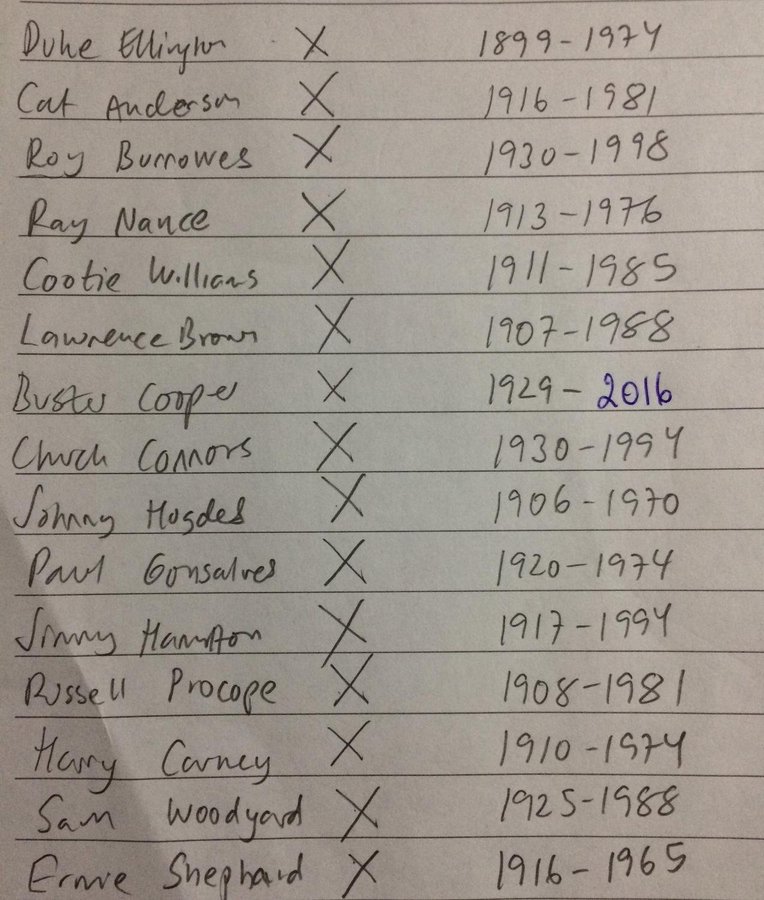 Duke Ellington X 1899-1974
Cat Anderson X 1916-1981
Roy Burrowes X 1930-1998
Ray Nance X 1913-1976
Cootie Williams X 1911-1985
Lawrence Brown X 1907-1988
Buster Cooper X 1929-2016
Chuck Connors X 1930-1994
Johnny Hogdes X 1906-1970
Paul Gonsalves X 1920-1974
Jimmy Hamilton X 1917-1994
Russell Procope X 1908-1981
Harry Carney X 1910-1974
Sam Woodyard X 1925-1988
Ernie Shephard X 1916-1965